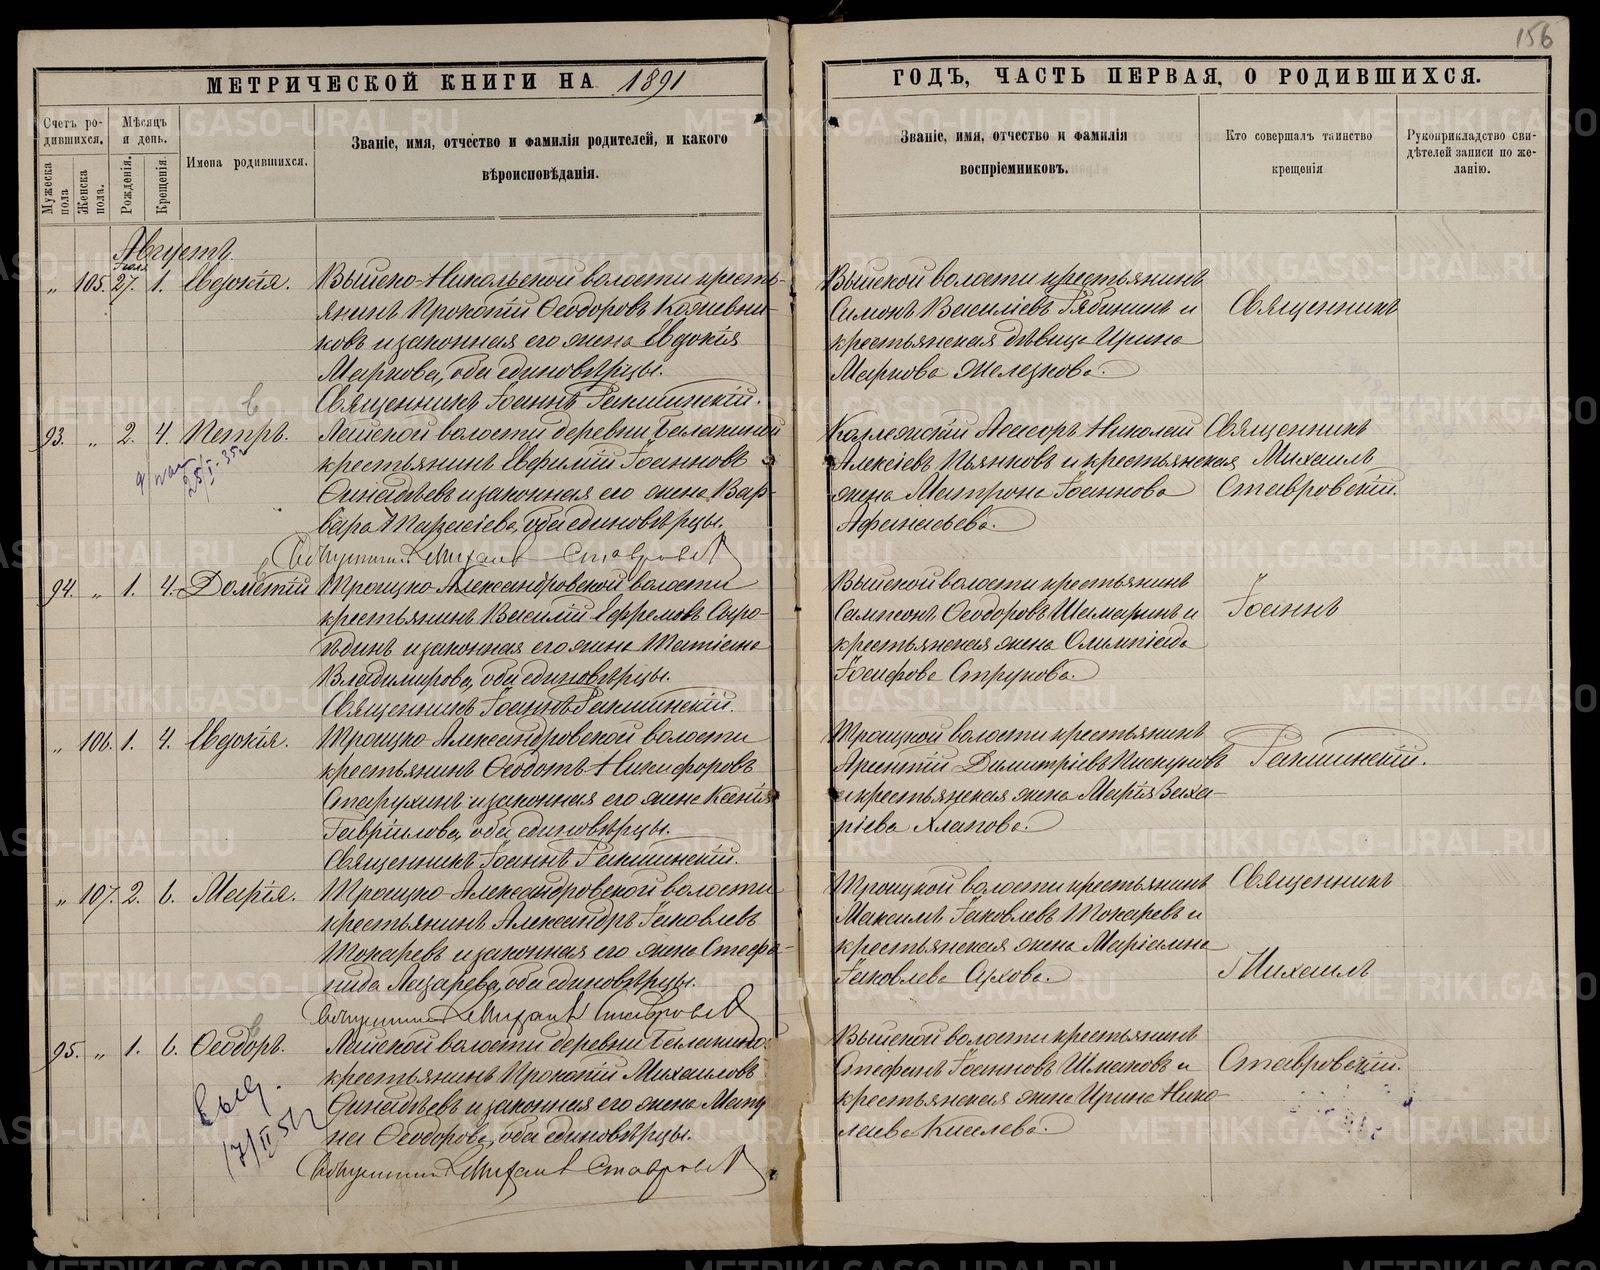 156
МЕТРИЧЕСКОЙ КНИГИ НА 1891
ГОДЪ, ЧАСТЬ ПЕРВАЯ, О РОДИВШИХСЯ.
Счетъ ро-
дившихся.
Мужеска
пола
Женска
пола.
Мѣсяцъ
и день.
Рожденія.
Крещенія.
Имена родившихся.
Званіе, имя, отчество и фамилія родителей, и какого
вѣроисповѣданія.
Званіе, имя, отчество и фамилія
воспріемниковъ.
Кто совершалъ таинство
крещенія
Рукоприкладство сви-
дѣтелей записи по же-
ланію.
Августъ.
Іюля
„ 105. 27. 1. Евдокія.
Выйско-Никольской волости кресть-
янинъ Прокопій Ѳеодоровъ Кожевни-
ковъ и законная его жена Евдокія
Маркова, оба единовѣрцы.
Священникъ Іоаннъ
Выйской волости крестьянинъ
Симонъ Василіевъ Рябининъ и
крестьянская дѣвица Ирина
Маркова Железкова.
Священникъ
93. „ 2. 4. Петръ.
25/I-35
Лайской волости деревни
крестьянинъ Евфимій Іоанновъ
и законная его жена Вар-
вара оба единовѣрцы.
Священникъ Михаилъ Ставровскій
Коллежскій Асесоръ Николай
Алексіевъ Пьянковъ и крестьянская
жена Матрона Іоаннова
Афанасьева.
Священникъ
Михаилъ
Ставровскій.
94. „ 1. 4. Дометій
Троицко-Александровской волости
крестьянинъ Василій Ефремовъ Сыро-
ѣдинъ и законная его жина Татіана
Владимирова, оба единовѣрцы.
Священникъ Іоаннъ
Выйской волости крестьянинъ
Сампсонъ Ѳеодоровъ Шамаринъ и
крестьянская жена Олимпіада
Іосифова Струкова.
Іоаннъ
„ 106. 1. 4. Евдокія.
Троицко-Александровской волости
крестьянинъ Ѳеодотъ Никифоровъ
Старухинъ и законная его жена Ксенія
Гавріилова, оба единовѣрцы.
Священникъ Іоаннъ
Троицкой волости крестьянинъ
Арсентій Димитріевъ Пискуновъ
и крестьянская жена Марія Заха-
ріева Хлапова.
„ 107. 2. 6. Марія.
Троицко-Александровской волости
крестьянинъ Александръ Іаковлевъ
Токаревъ и законная его жена Стефа-
нида Лазарева, оба единовѣрцы.
Священникъ Михаилъ Ставровскій
Троицкой волости крестьянинъ
Максимъ Іаковлевъ Токаревъ и
крестьянская жена Маріамна
Іаковлева Орхова.
Священникъ
Михаилъ
95. „ 1. 6. Ѳеодоръ.
17/II 51
Лайской волости деревни
крестьянинъ Прокопій Михаиловъ
и законная его жена
Ѳеодорова, оба единовѣрцы.
Священникъ Михаилъ Ставровскій
Выйской волости крестьянинъ
Стефанъ Іоанновъ Шмаковъ и
крестьянская жена Ирина Нико-
лаева Киселева.
Ставровскій.
METRIKI.GASO-URAL.RU